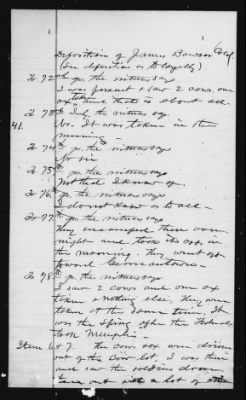 Deposition of James Bowson Col
(In deposition as to loyalty)
To 72nd qu. the witness says
I was present & saw 2 cows, one
ox taken and that is about all.
To 73rd Intg. the witness says
41. No. It was taken in the
morning
To 74th qu. the witness says
No sir
To 75th qu. the witness says
Not that I know of.
To 76th qu. the witness says
I do not know at all
To 77th qu. the witness says
They encamped there over
night and took its off in
the morning. They went off
toward Germantown
To 78th qu. the witness says
I saw 2 cows and one ox
taken & nothing else, they were
taken at the same time. It
was the Spring after the Federals
took Memphis
Item 6 & 7. The cows & ox were driven
out of the cow lot. I was there
and saw the soldiers down
came out with a lot of other